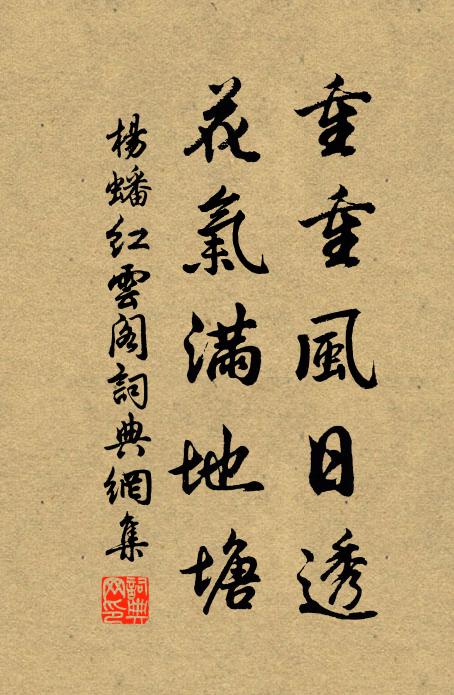 重重風日透
花氣滿地塘
楊蟠紅雲閣詞典網集
詞典網印